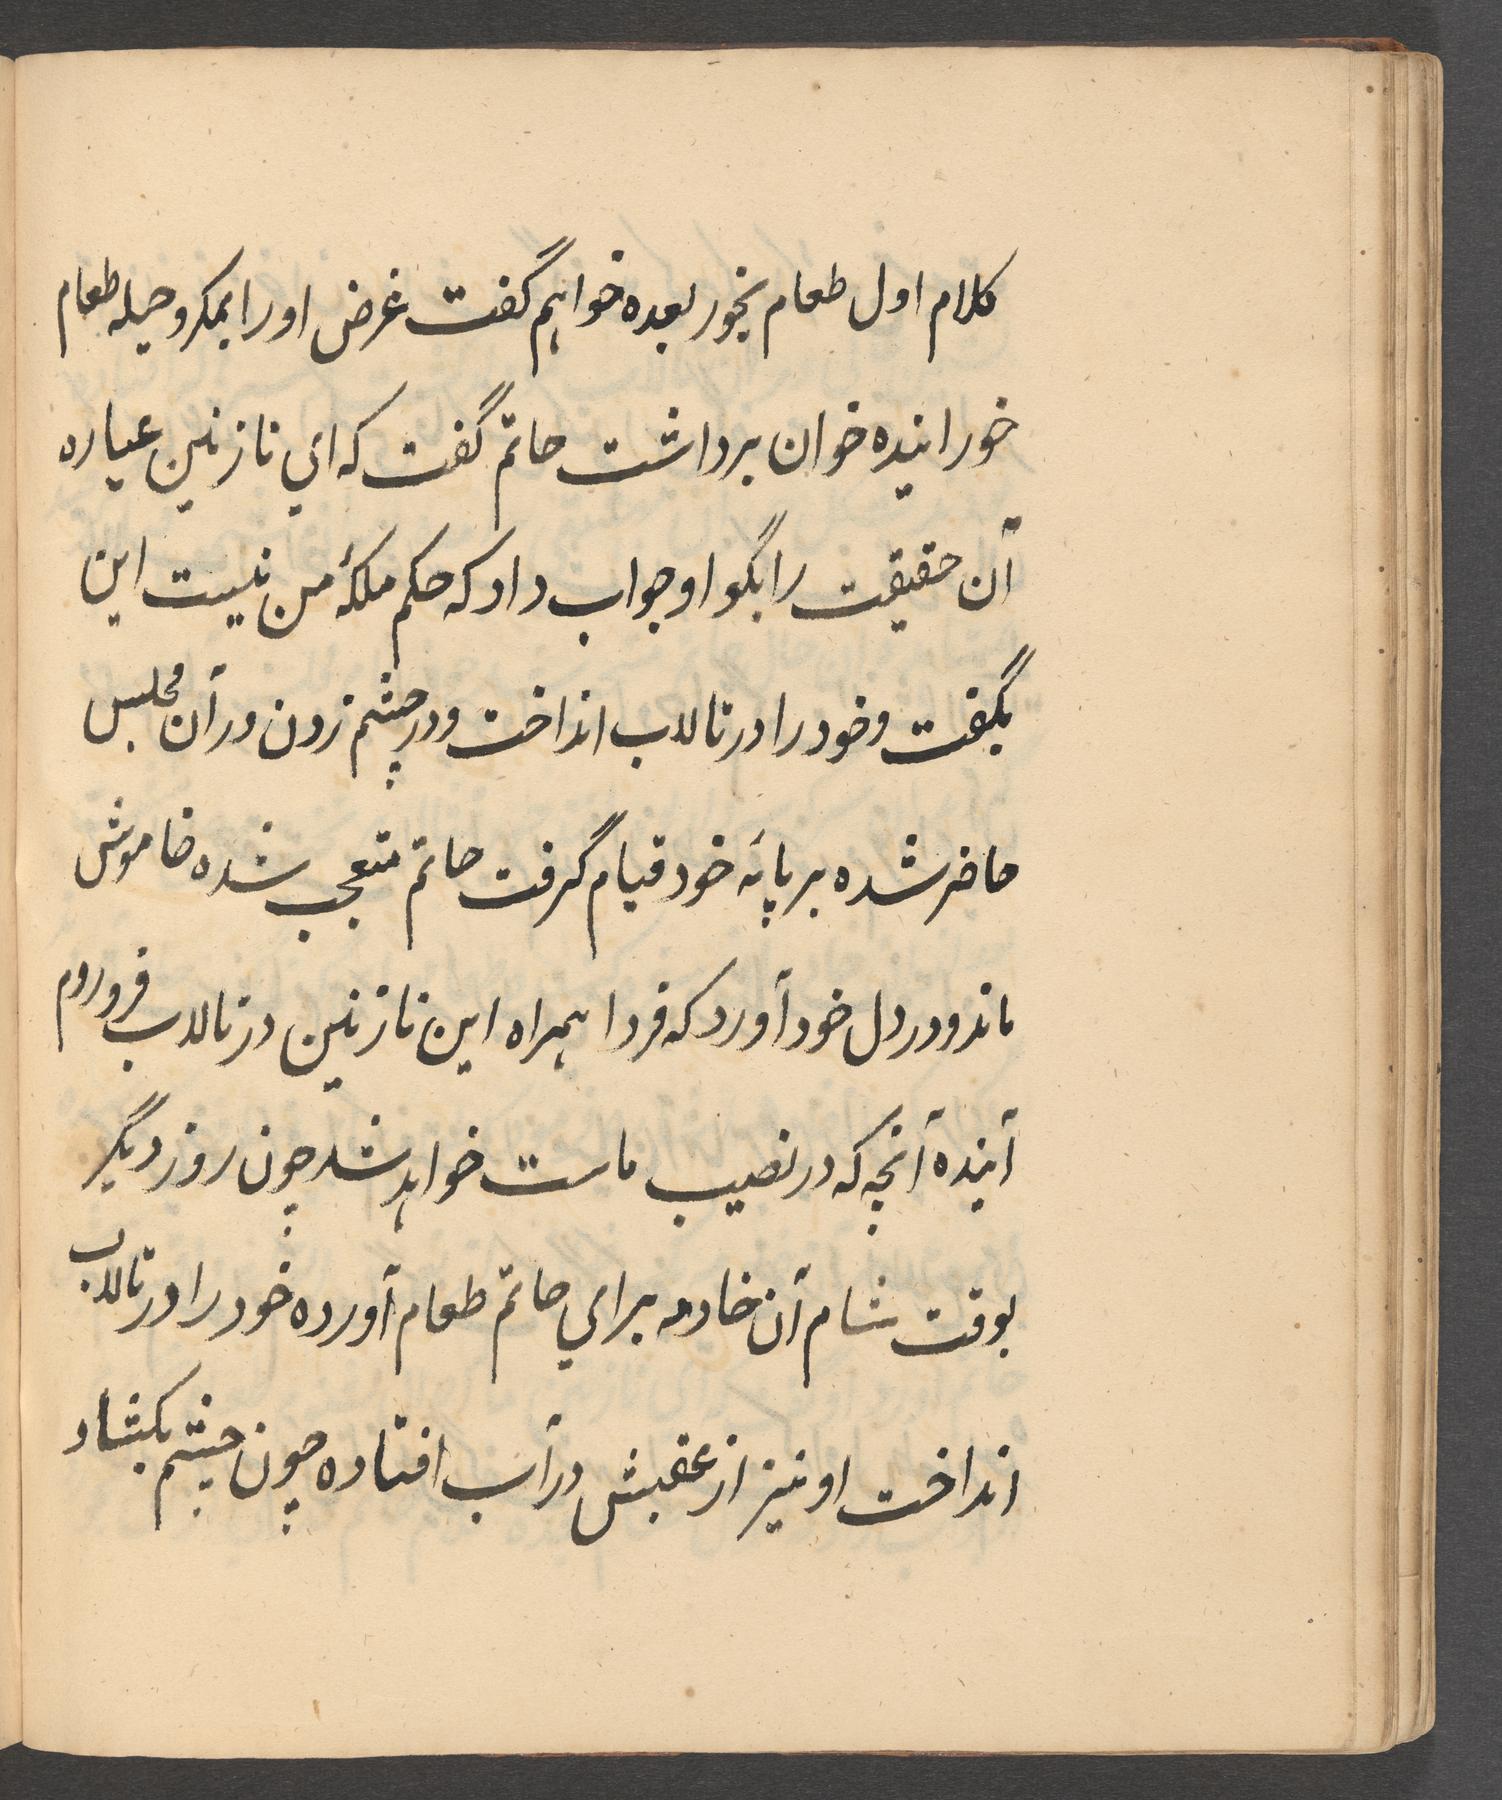 کلام اول طعام بخور بعده خواهم گفت غرض او را بمکر و حیله طعام
خورانیده خوان برداشت حاتم گفت که اي نازنین عیاره
آن حقیقت را بگو او جواب داد که حکم ملکهٔ من نیست این
بگفت و خود را در تالاب انداخت و در چشم زدن در آن مجلس
حاضر شده بر پائه خود قیام گرفت حاتم متعجب شده خاموش
ماند و در دل خود آورد که فردا همراه این نازنین در تالاب فرو روم
آینده آنچه که در نصیب ماست خواهد شد چون روز دیگر
بوقت شام آن خادمه براي حاتم طعام آورده خود را در تالاب
انداخت او نیز از عقبش در آب افتاده چون چشم بکشاد